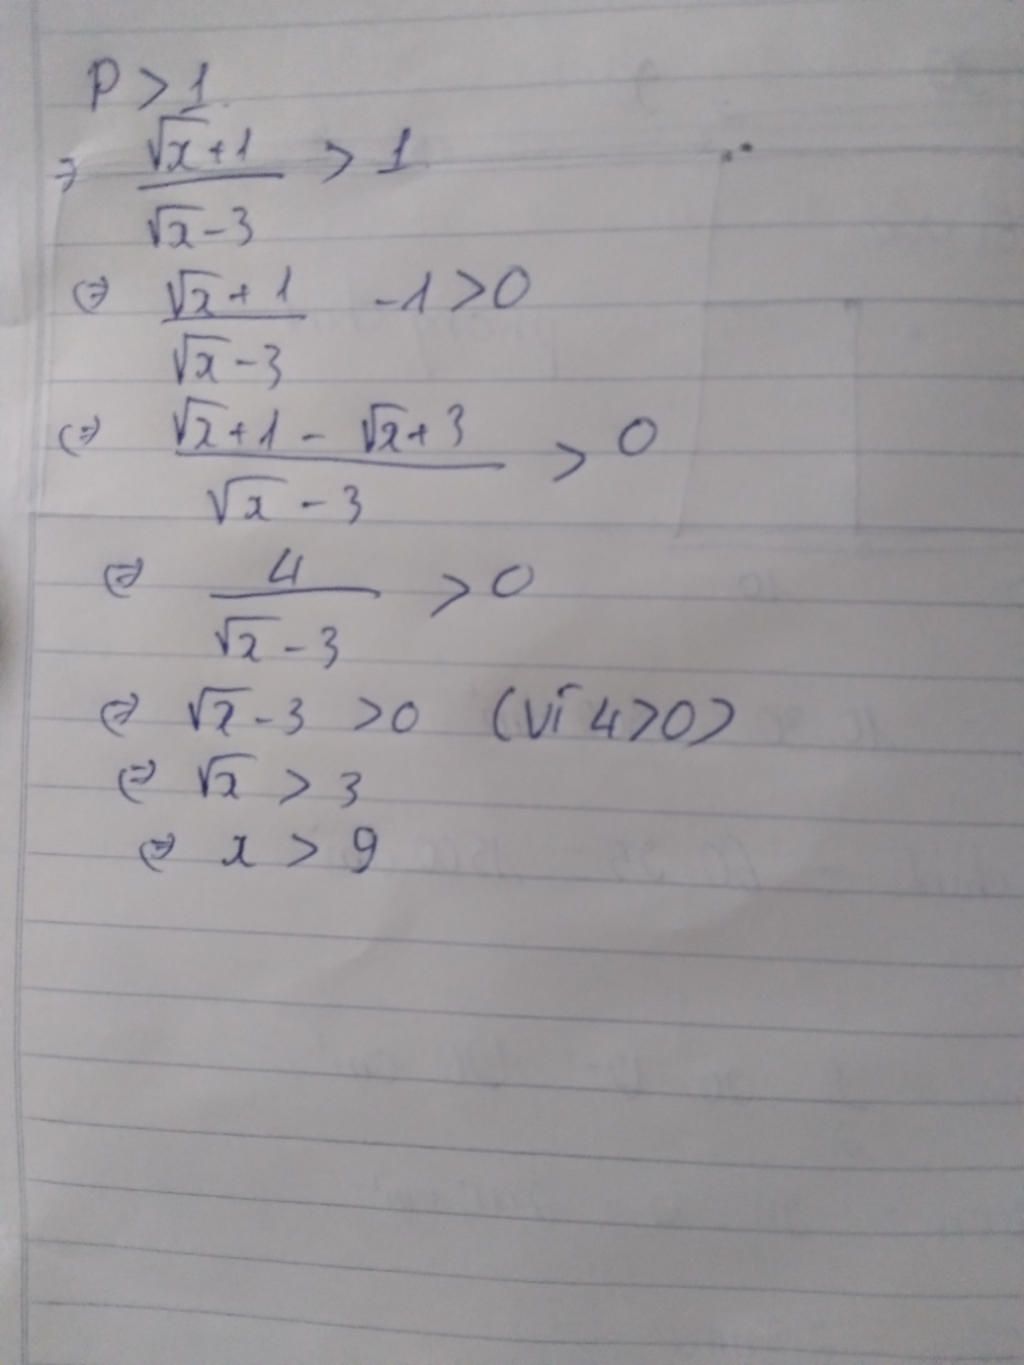 P > 1
=> (√x + 1)/(√x - 3) > 1
(=) (√x + 1)/(√x - 3) - 1 > 0
(=) (√x + 1 - √x + 3)/(√x - 3) > 0
(=) 4/(√x - 3) > 0
(=) √x - 3 > 0 (Vì 4 > 0)
(=) √x > 3
(=) x > 9